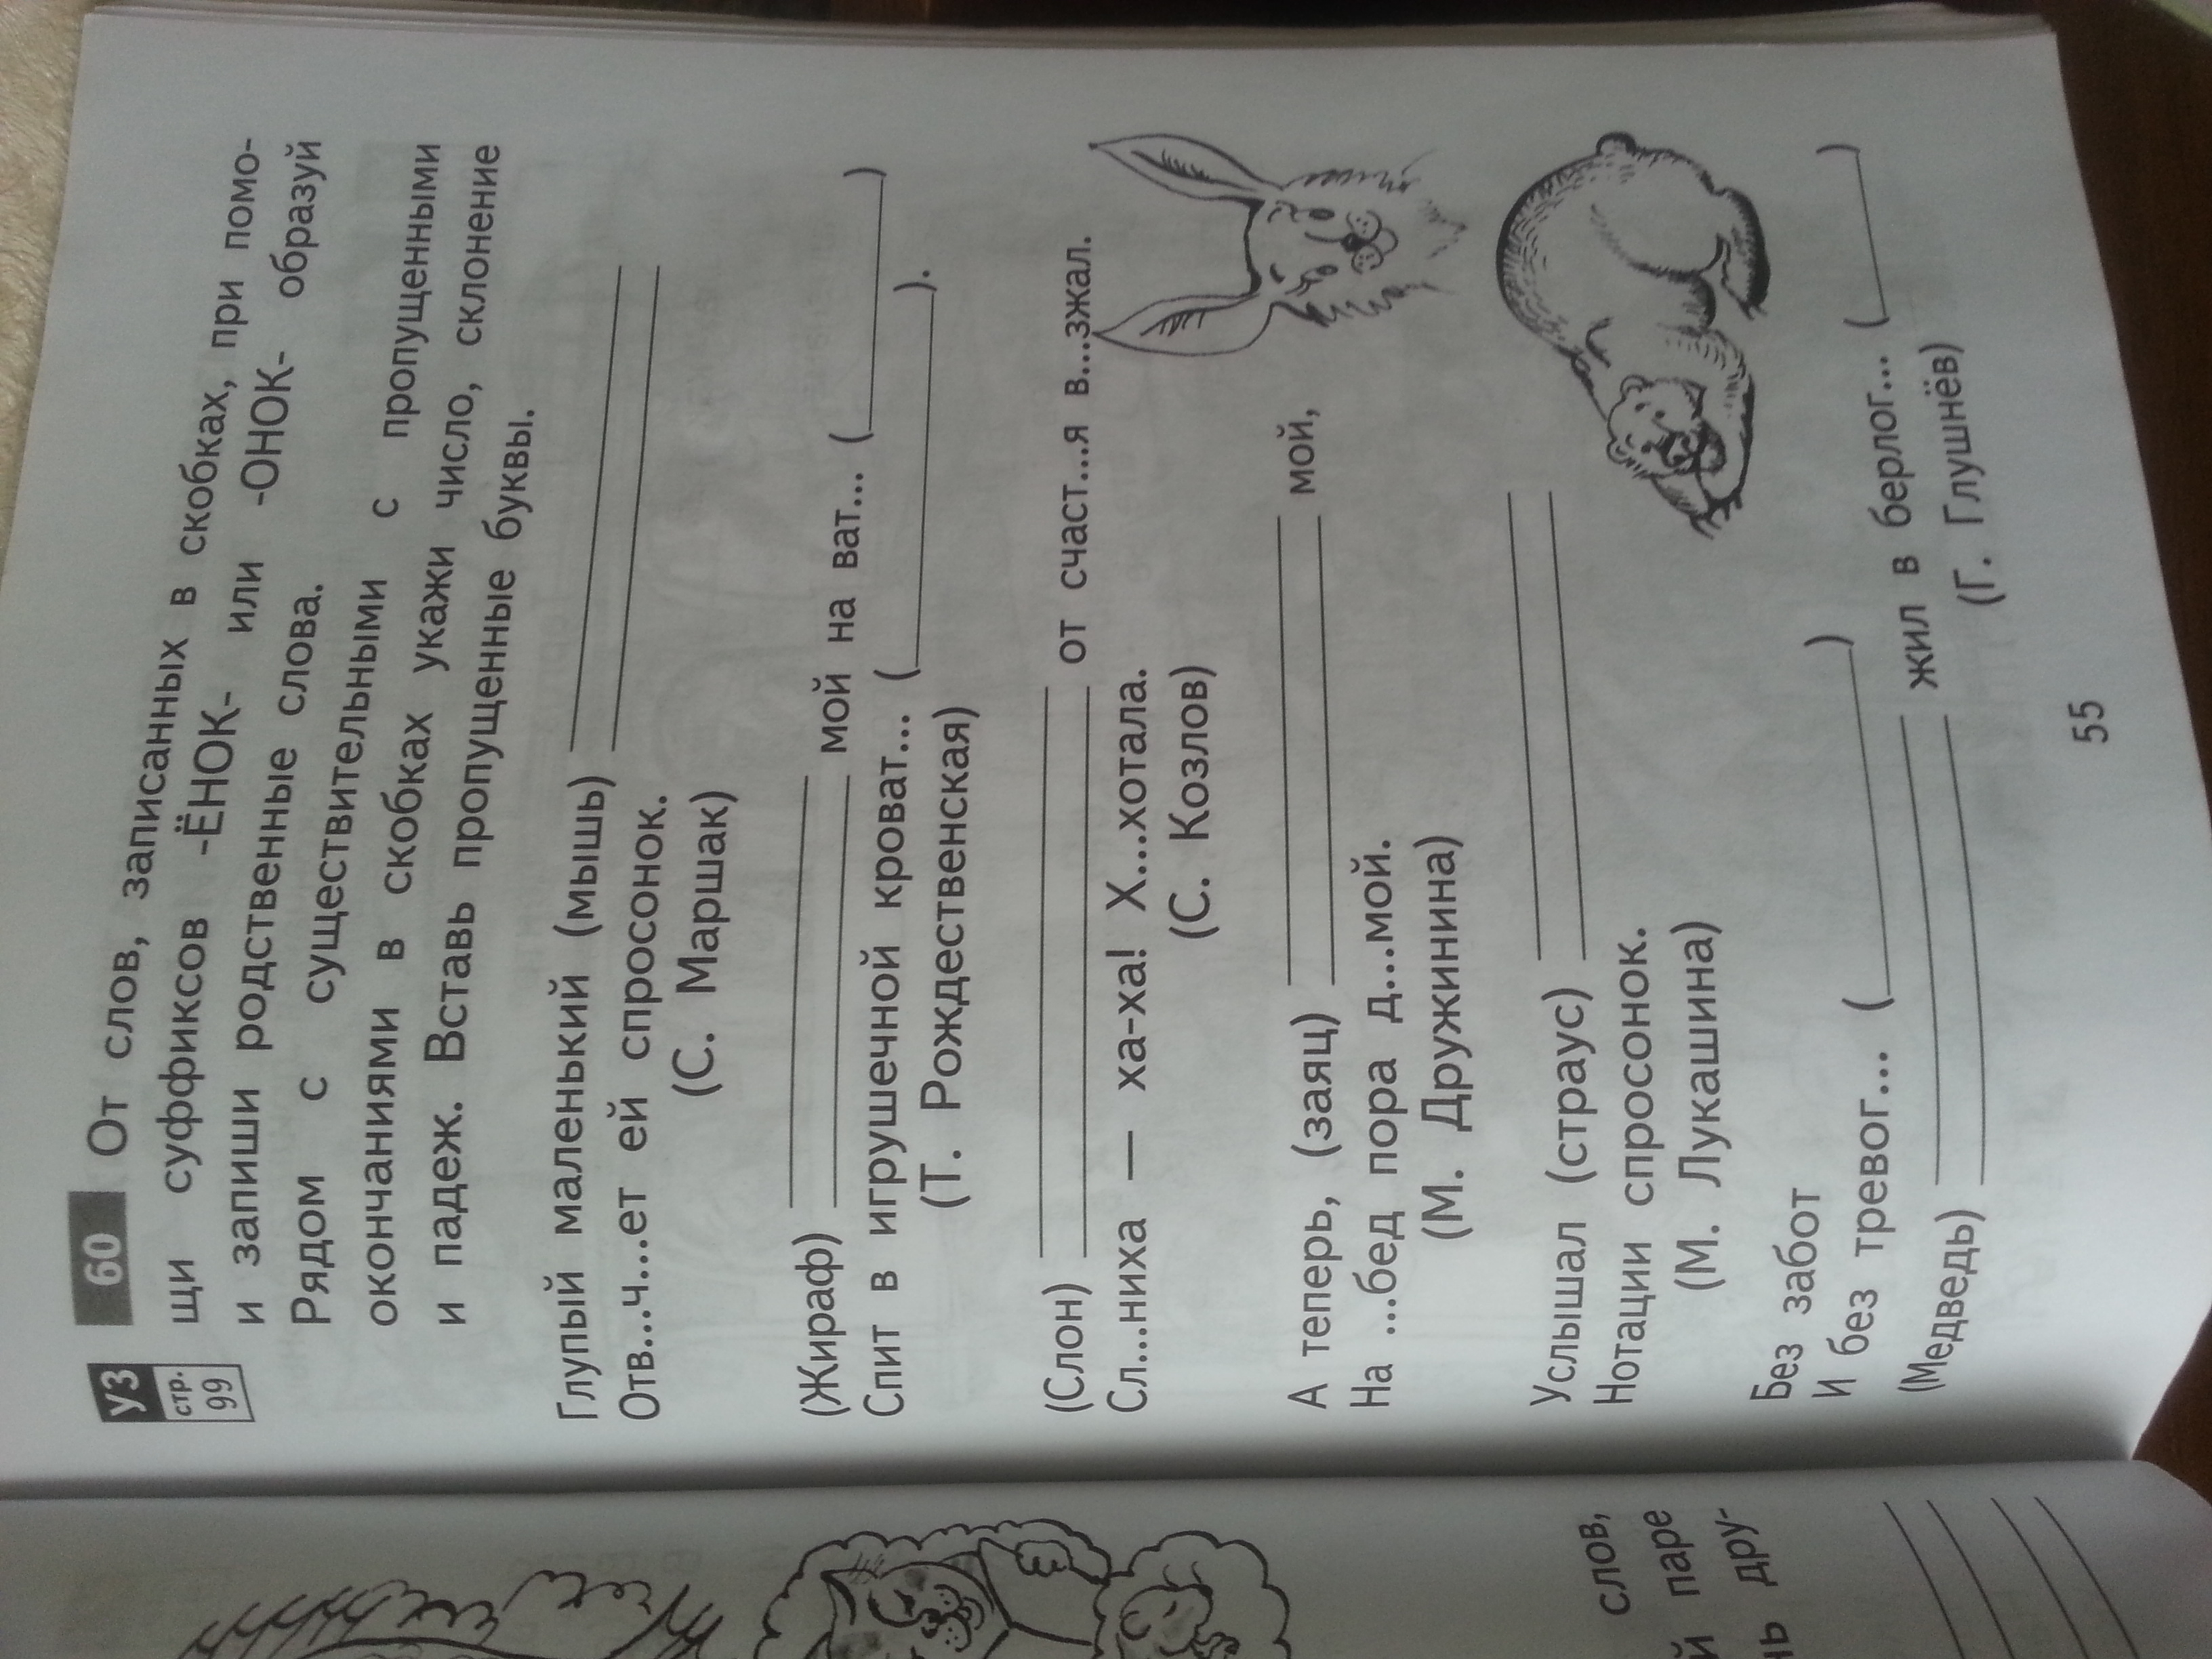 УЗ
стр.
99
60 От слов, записанных в скобках, при помо-
щи суффиксов -ЁНОК- или -ОНОК- образуй
и запиши родственные слова.
Рядом с существительными с пропущенными
окончаниями в скобках укажи число, склонение
и падеж. Вставь пропущенные буквы.
Глупый маленький (мышь)
Отв...ч...ет ей спросонок.
(С. Маршак)
(Жираф) мой на ват... ( )
Спит в игрушечной кроват... ( ).
(Т. Рождественская)
(Слон) от счаст...я в...зжал.
Сл...ниха — ха-ха! Х...хотала.
(С. Козлов)
А теперь, (заяц) мой,
На ...бед пора д...мой.
(М. Дружинина)
Услышал (страус)
Нотации спросонок.
(М. Лукашина)
Без забот
И без тревог... ( )
(Медведь) жил в берлог... ( )
(Г. Глушнёв)
55
слов,
й паре
нь дру-